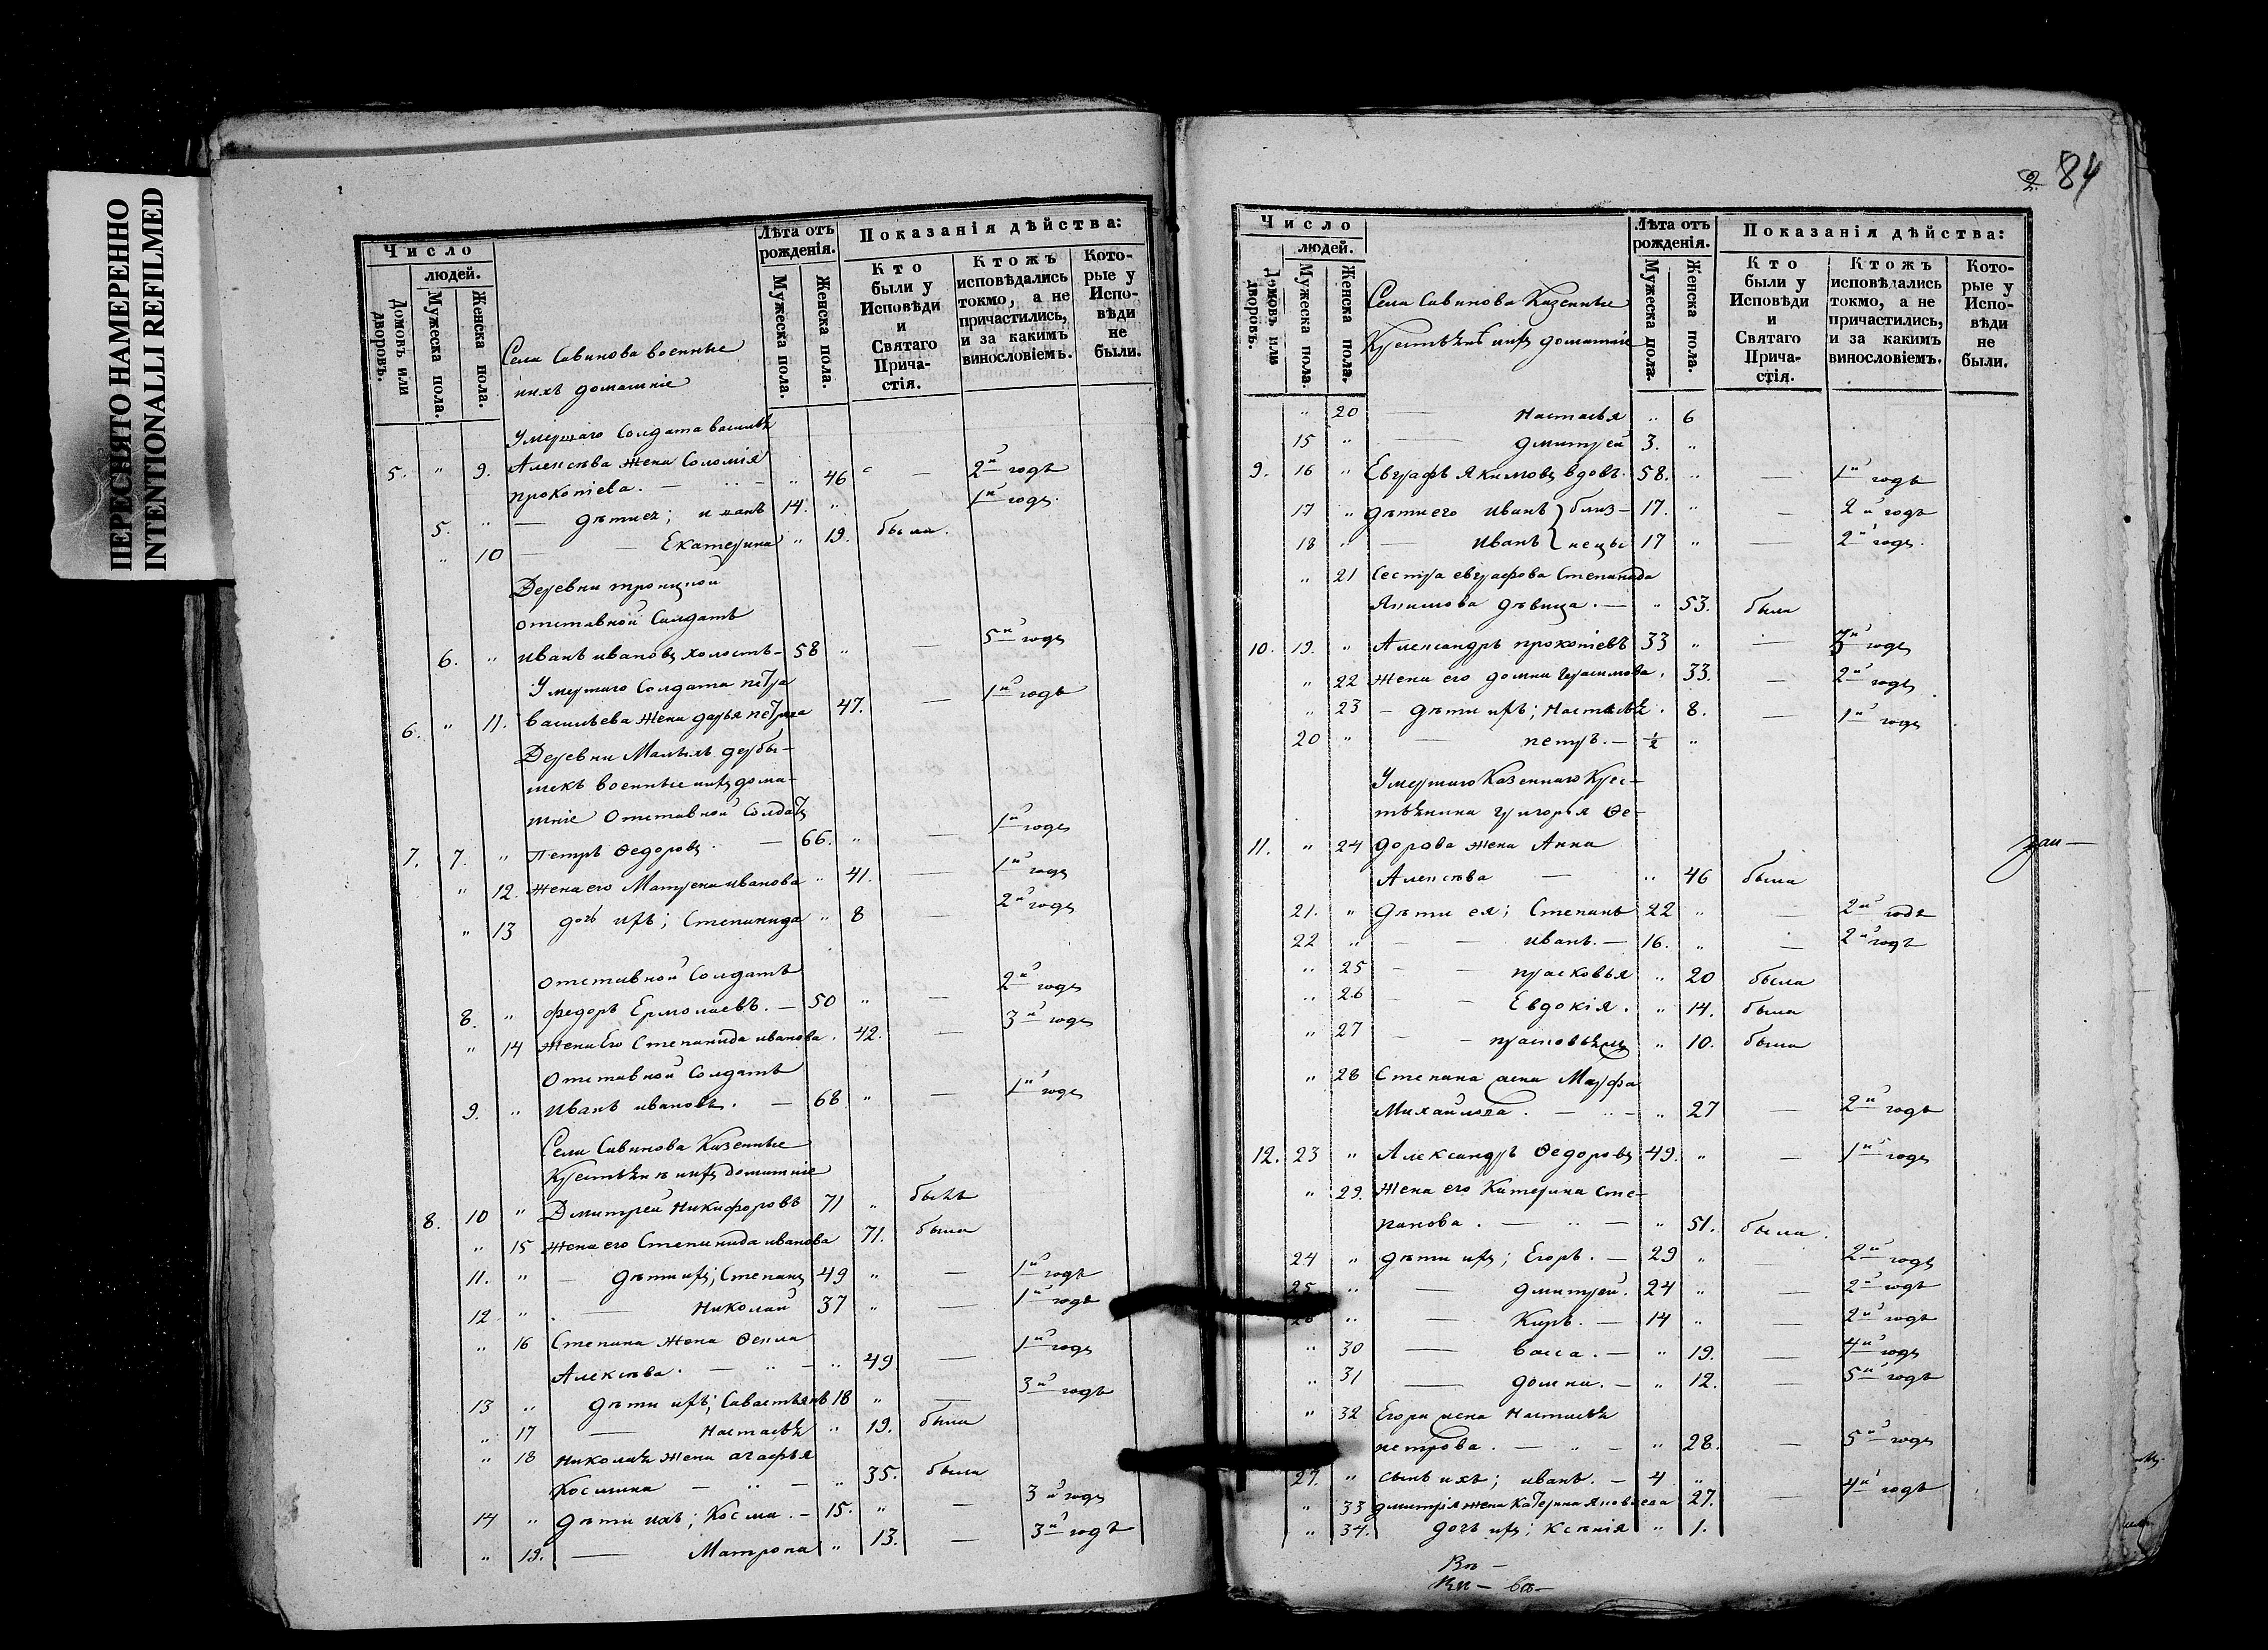 ПЕРЕСНЯТО НАМЕРЕННО
INTENTIONALLI REFILMED
Число
людей.
Домовъ или дворовъ.
Мужеска пола.
Женска пола.
Села Савинова военные
ихъ домашніе
Лѣта отъ рожденія.
Мужеска пола.
Женска пола.
Показанія дѣйства:
Кто были у Исповѣди и Святаго Прича-стія.
Ктожъ исповѣдались токмо, а не причастились, и за какимъ винословіемъ.
Кото-рые у Испо-вѣди не были.
Умершаго Солдата василья
5. " 9. Алексѣва жена Соломія
прокопіева. — " 46 — 2й годъ
5. " — дѣти ея; иванъ 14. " 1й годъ.
" 10 — — Екатерина " 19. была.
Деревни троицкой
отставной Солдатъ
6. " иванъ ивановъ холостъ — 58 " — 5й годъ
Умершаго Солдата петра
6. " 11. васильева жена дарья петрова 47. — 1й годъ
Деревни Малыхъ дербы-
шекъ военные ихъ дома-
шніе Отставной Солдатъ
7. 7. " Петръ Ѳедоровъ. — 66. " — 1й годъ
" 12. жена его Матрена иванова " 41. — 1й годъ
" 13 дочь ихъ; Степанида " 8 — 2й годъ
отставной Солдатъ
8. " федоръ Ермолаевъ. — 50 " — 2й годъ
" 14 жена Его Степанида иванова. 42. — 3й годъ
Отставной Солдатъ
9. " иванъ ивановъ. — 68 " — 1й годъ
Села Савинова Казенные
Крестьяне ихъ домашніе
8. 10 " Дмитрей Никифоровъ 71 " былъ
" 15 жена его Степанида иванова 71. была
11. " — дѣти ихъ; Степанъ 49 " — 1й годъ
12 " — Николай 37 " — 1й годъ
" 16 Степана жена Ѳекла
Алексѣва. — " — " 49. — 1й годъ
13 " дѣти ихъ; Савастьянъ 18 " — 3й годъ
" 17 — настасья " 19. была
" 18 николая жена агафья
Космина — " — " 35. была
14 " дѣти ихъ; Косма. — 15. " — 3й годъ
" 19. — Матрона " 13. — 3й годъ
2 84
Число
людей.
Домовъ или дворовъ.
Мужеска пола.
Женска пола.
Села Савинова Казенные
Крестьянѣ ихъ домашніе
Лѣта отъ рожденія.
Мужеска пола.
Женска пола.
Показанія дѣйства:
Кто были у Исповѣди и Святаго Прича-стія.
Ктожъ исповѣдались токмо, а не причастились, и за какимъ винословіемъ.
Кото-рые у Испо-вѣди не были.
" 20 — Настасья " 6
15 " — дмитрей 3. "
9. 16 " Евграфъ Якимовъ вдовъ. 58. " — 1й годъ
17 " дѣти его иванъ } близ- 17. " — 2й годъ
18 " — иванъ } нецы 17 " — 2й годъ.
" 21 Сестра евграфова Степанида
Якимова дѣвица. — " 53. была
10. 19. " Александръ прокопіевъ 33 " — 3й годъ
" 22 жена его домна герасимова. 33. — 2й годъ
" 23 — дѣти ихъ; Настасья. 8. — 1й годъ
20 " — петръ. — ½ "
Умершаго Казеннаго Крес-
тьянина григорья Ѳе-
11. " 24 дорова жена Анна
Алексѣва — " 46 была
21. " дѣти ея; Степанъ 22 " — 2й годъ
22 " — — иванъ. — 16. " — 2й годъ
" 25 — — прасковья " 20 была
" 26 — — Евдокія. " 14. была
" 27 — — прасковья " 10. была
" 28 Степана жена Марфа
Михайлова. — " — " 27 — 2й годъ
12. 23 " Александръ Ѳедоровъ 49. " — 1й годъ
" 29. Жена его Катерина Сте-
панова. — " — " 51. была.
24 " дѣти ихъ; Егоръ. — 29 " — 2й годъ
25 " — дмитрей. 24 " — 2й годъ
26 " — Киръ. — 14 " — 2й годъ
" 30 — васса. — " 19. — 4й годъ
" 31 — домна. — " 12. — 5й годъ
" 32 Егора жена Настасья
петрова. — " — " 28. — 5й годъ
27. " сынъ ихъ; иванъ. — 4 "
" 33 дмитрія жена Катерина яковлева 27. — 4й годъ
" 34. дочь ихъ; ксенія " 1.